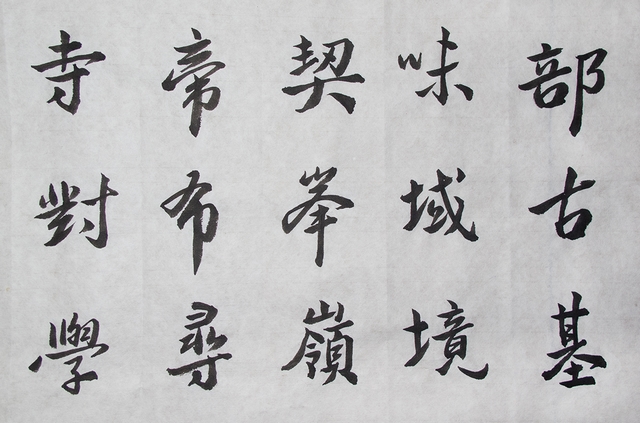 部古基
味域境
契峯嶺
帝布尋
寺對學